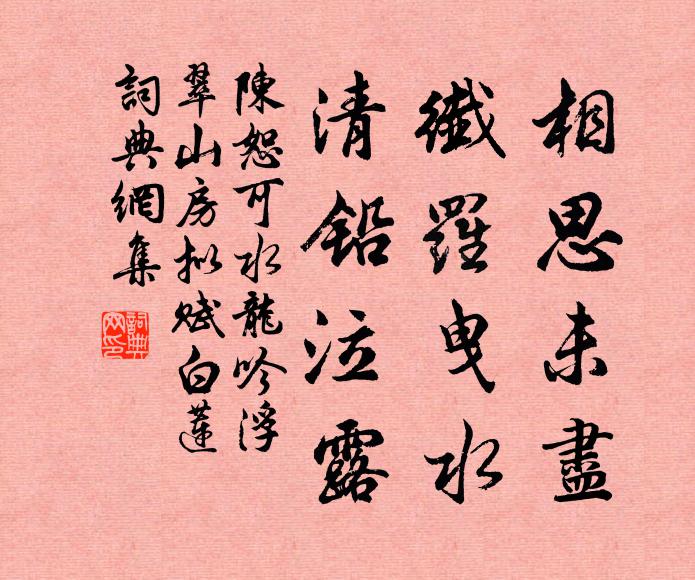 相思未盡
纖羅曳水
清鉛泣露
陳恕可水龍吟浮
翠山房拟賦白蓮
詞典網集
詞典網印